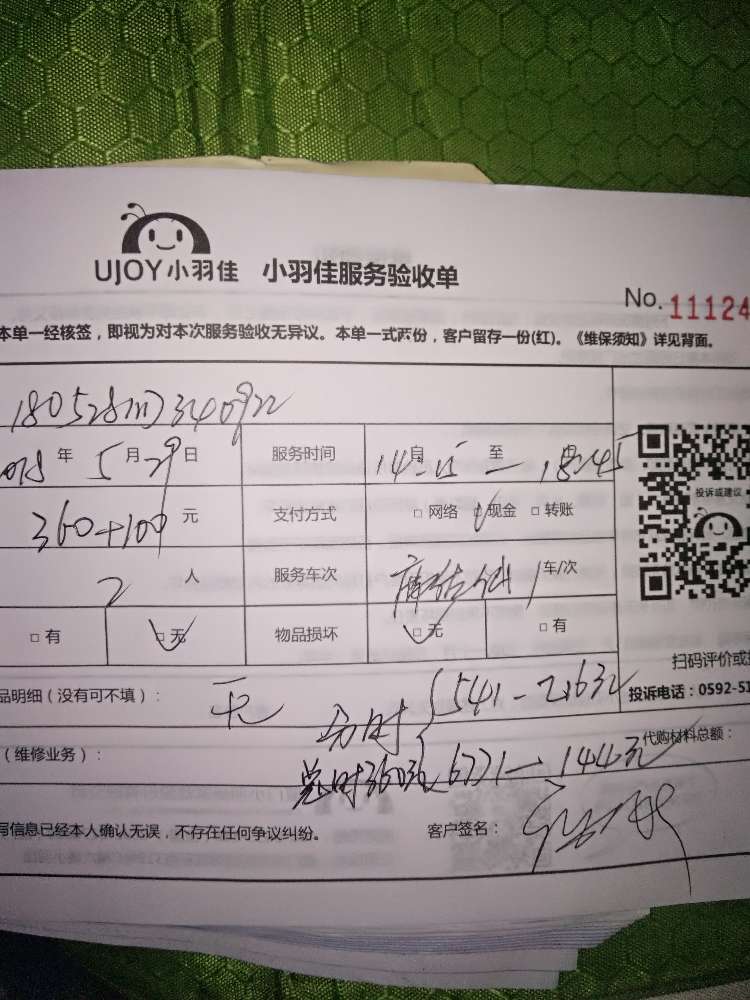 UJOY小羽佳 小羽佳服务验收单
No. 11124
本单一经核签，即视为对本次服务验收无异议。本单一式两份，客户留存一份(红)。《维保须知》详见背面。
年 5 月 29 日 服务时间 自 至 18:45
360+100 元 支付方式 □ 网络 □ 现金 □ 转账
投诉或建议
2 人 服务车次 1 车/次
□ 有 □ 无 物品损坏 □ 无 □ 有
扫码评价或
投诉电话：0592-51
品明细（没有可不填）： 无
541 — 216元
（维修业务）： 代购材料总额：
360元 6771 — 144元
写信息已经本人确认无误，不存在任何争议纠纷。 客户签名：